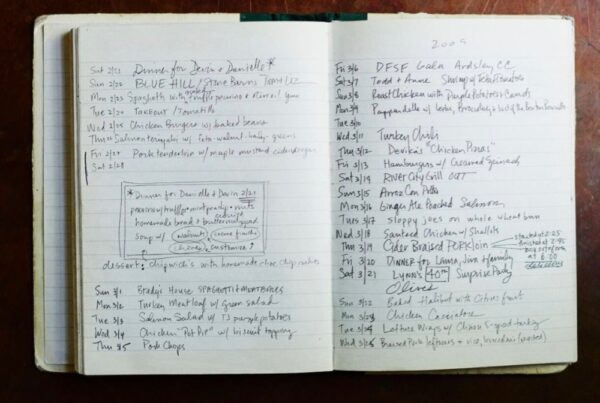 Sat 2/21 Dinner for Devin + Danielle *
Sun 2/22 BLUE HILL / Stone Barns
Mon 2/23 Spaghetti with
Tue 2/24 TAKEOUT / Tomatillo
Wed 2/25 Chicken burgers w/ baked beans
Thu 26 Salmon teriyaki w/ feta-walnut- greens
Fri 2/27 Pork tenderloin w/ maple mustard cider
Sat 2/28
* Dinner for Danielle + Devin 2/21
homemade bread + butternut squash
soup w/ walnuts
chives customize
dessert: chipwich's with homemade choc chip cookies
Sun 3/1 Brady's House SPAGHETTI + MEATBALLS
Mon 3/2 Turkey Meatloaf w/ green salad
Tue 3/3 Salmon Salad w/ TJ purple potatoes
Wed 3/4 Chicken "Pot Pie" w/ biscuit topping
Thu 3/5 Pork Chops
2009
Fri 3/6 DFSF Gala Ardsley CC
Sat 3/7 Todd + Anne Shrimp w/ Feta + Tomatoes
Sun 3/8 Roast Chicken with Purple Potatoes + Carrots
Mon 3/9 Pappardelle w/
Tue 3/10
Wed 3/11 Turkey Chili
Thu 3/12 Devika's "Chicken Pizzas"
Fri 3/13 Hamburgers w/ Creamed Spinach
Sat 3/14 River City Grill OUT
Sun 3/15 Arroz Con Pollo
Mon 3/16 Ginger Ale Poached Salmon
Tues 3/17 Sloppy Joes on whole wheat bun
Wed 3/18 Sauteed Chicken w/ Shallots
Thu 3/19 Cider Braised PORK loin
Fri 3/20 DINNER for Laura, Jim + family
Sat 3/21 Lynn's 40th Surprise Party
Olives
Sun 3/22 Baked Halibut with Citrus
Mon 3/23 Chicken Cacciatore
Tue 3/24 Lettuce Wraps w/ Chinese 5-spice turkey
Wed 3/25 Braised Pork leftovers + rice,